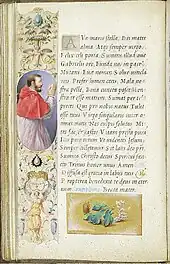 Ave maris stella, Dei mater
alma. Atque semper virgo,
Felix celi porta. Sumens illud ave
Gabrielis ore. Funda nos in pace
Mutans Eve nomen. Solve vincla
reis. Profer lumen cecis. Mala no
stra pelle, Bona cuncta posce. Monstra
te esse matrem. Sumat per te
preces. Qui pro nobis natus Tulit
esse tuus. Virgo singularis inter
omnes mitis. Nos culpis solutos Mi
tes fac et castos. Vitam presta puram
Iter para tutum. Ut videntes Jesum,
Semper colletemur. Sit laus deo patri
Summo Christo decus Spiritui sancto
Trinus honor unus. Amen.
Diffusa est gratia in labiis tuis.
Propterea benedixit te deus in eter
num.